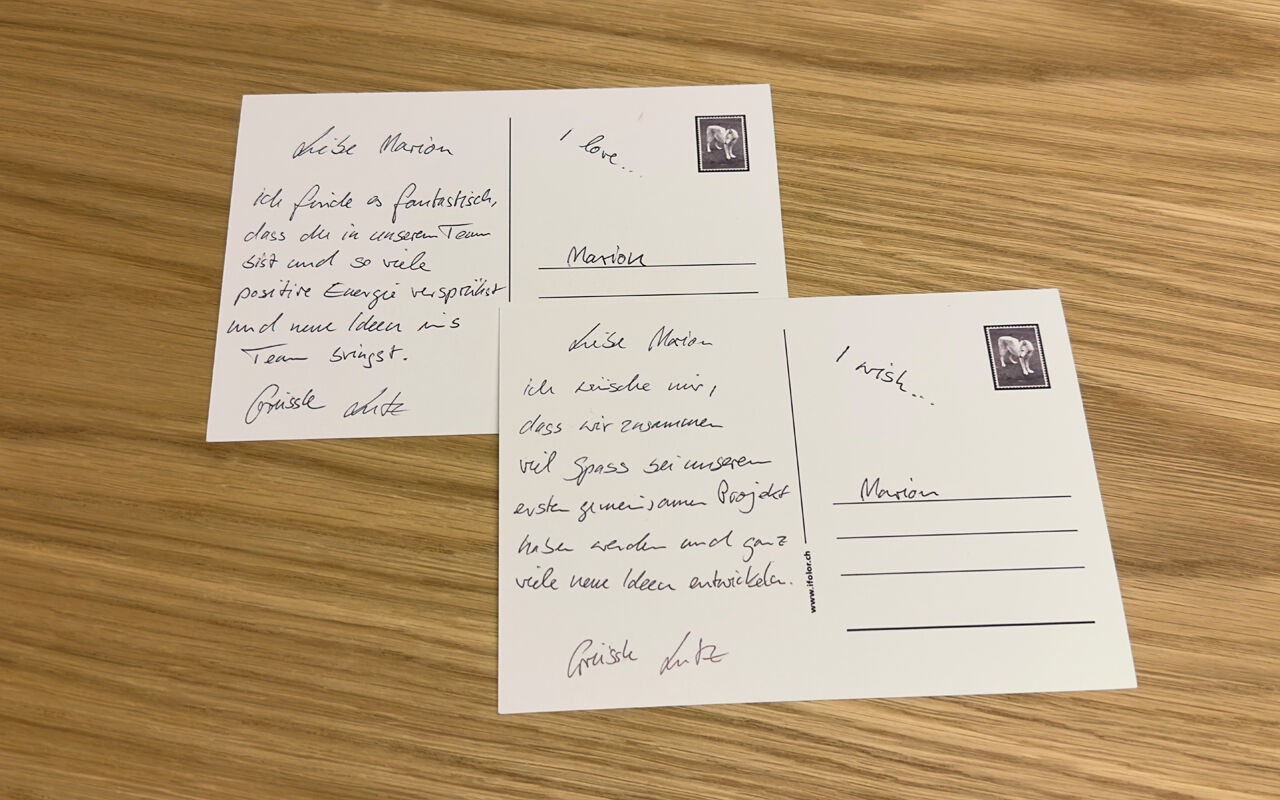 Liebe Marion
ich finde es fantastisch,
dass du in unserem Team
bist und so viele
positive Energie versprühst
und neue Ideen ins
Team bringst.
Grüssle Lutz
I love...
Marion
Liebe Marion
ich wüsche mir,
dass wir zusammen
viel Spass bei unserem
ersten gemeinsamen Projekt
haben werden und ganz
viele neue Ideen entwickeln.
Grüssle Lutz
www.ifolor.ch
I wish...
Marion